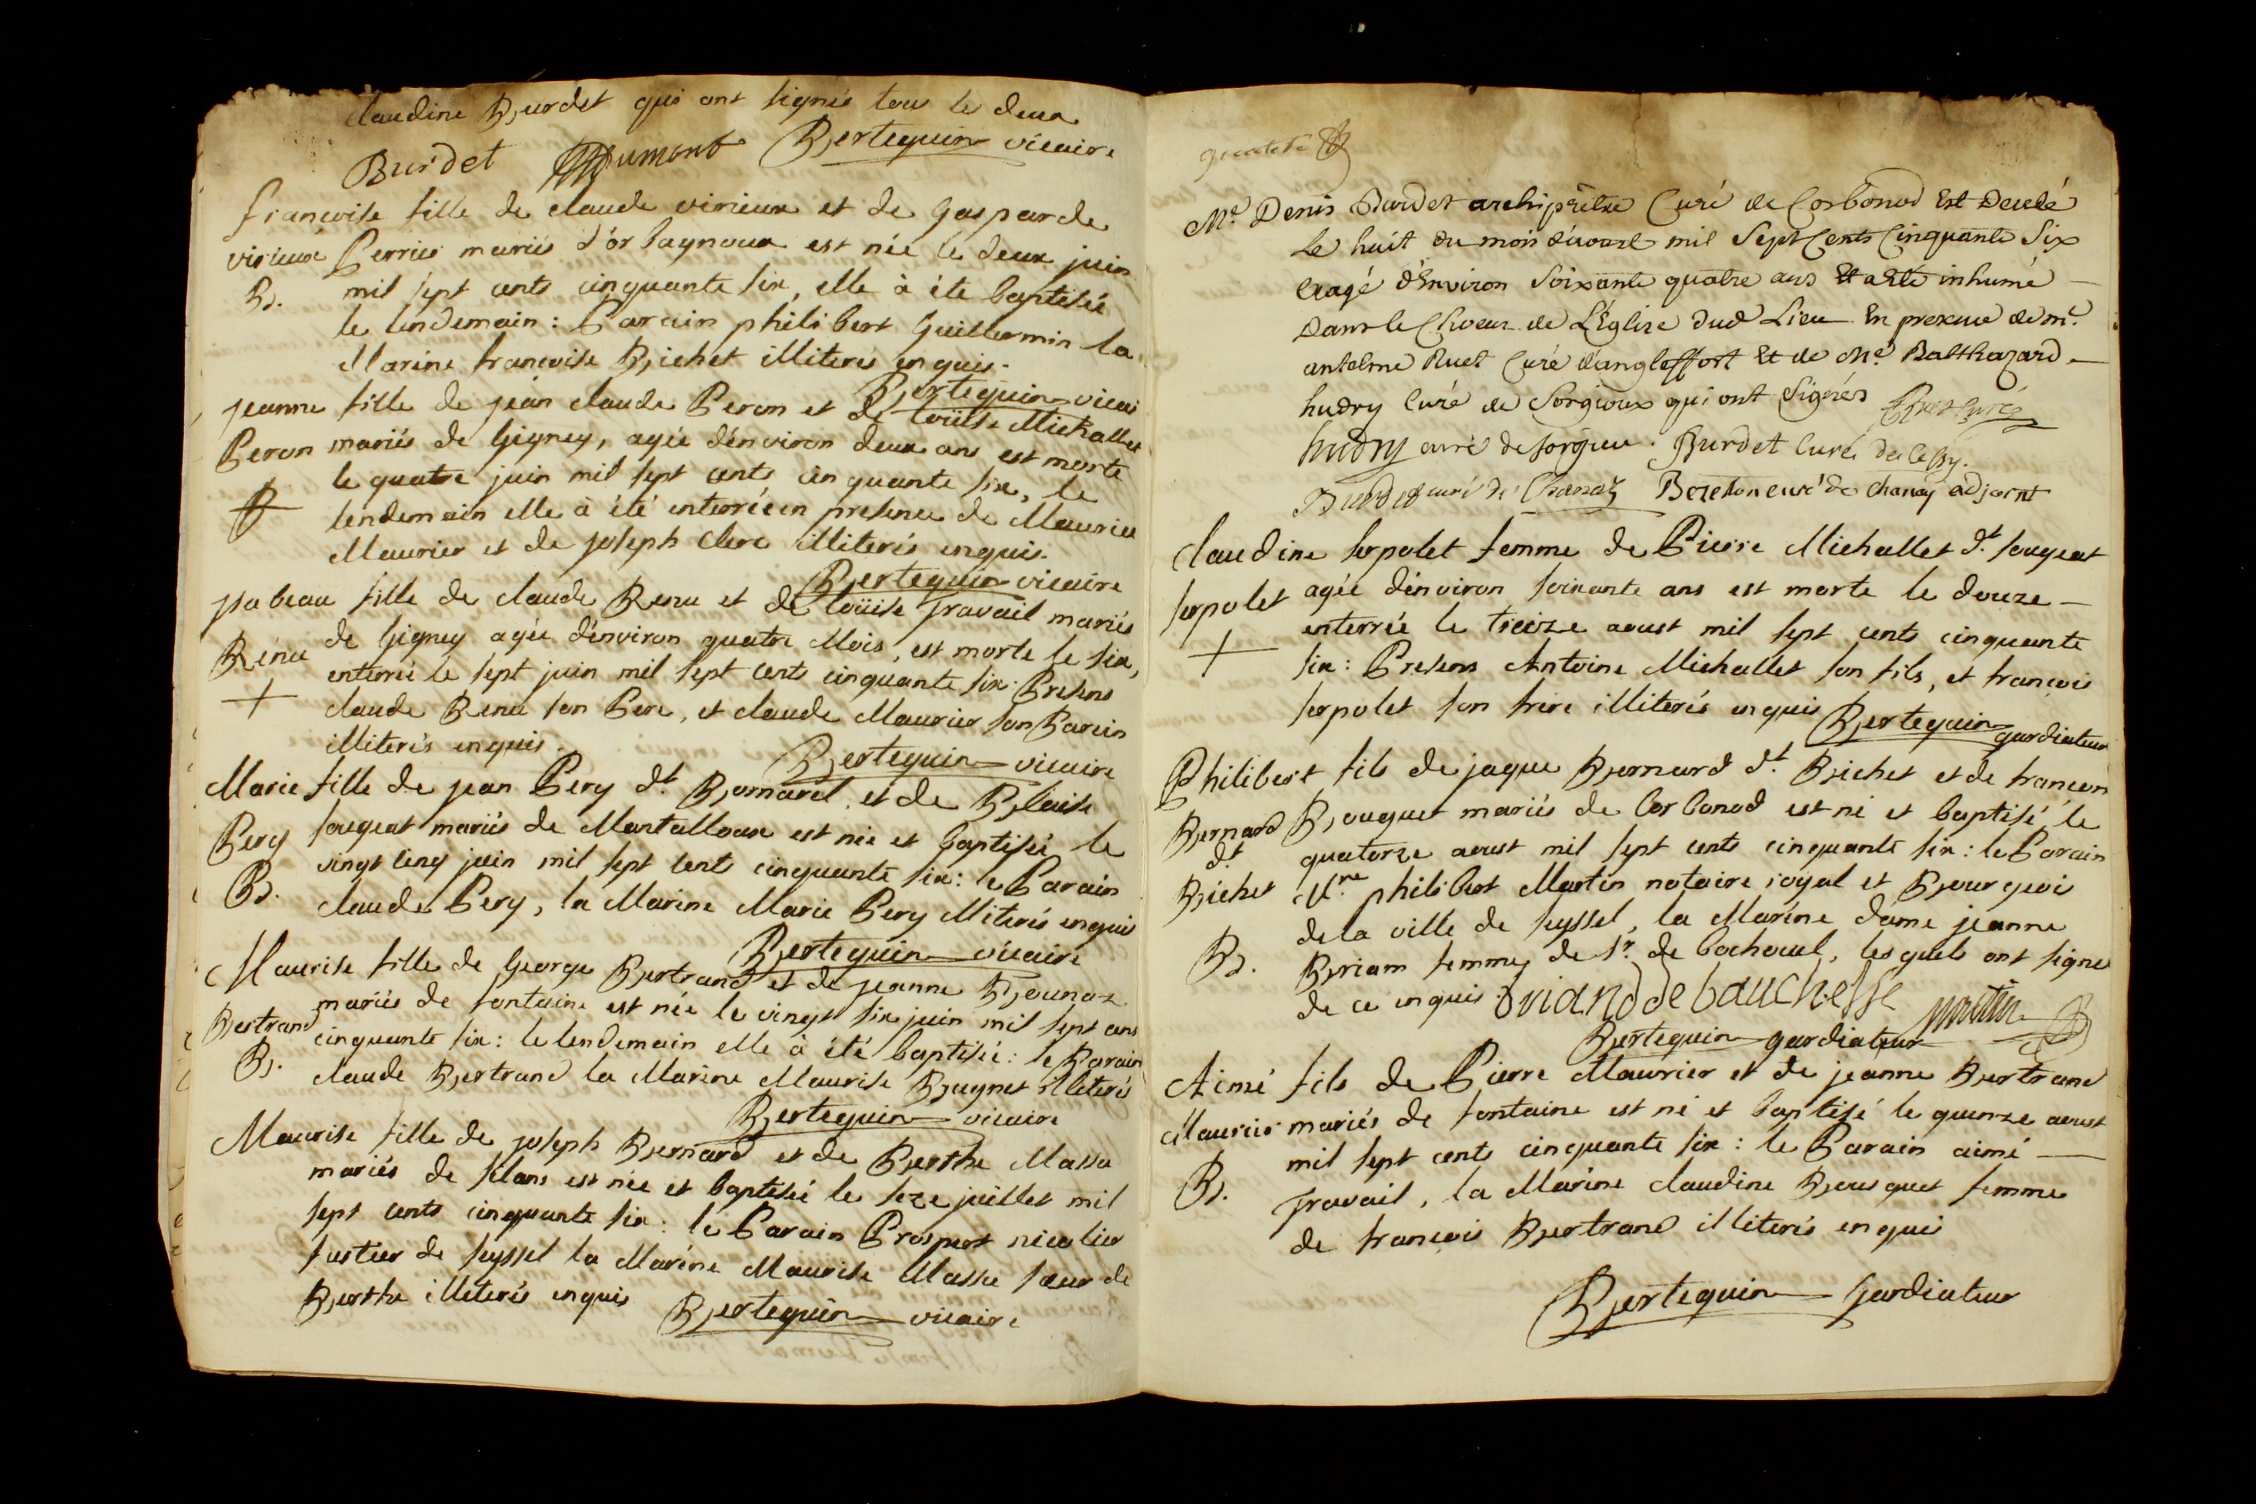 Claudine Burdet qui ont signés tous les deux
Burdet Dumont Bertequin vicaire
francoise fille de claude virieux et de gasparde
virieux Perrier mariés d'orbagnoux est née le deux juin
B. mil sept cents cinquante six, elle à été baptisée
le lendemain : Parain philibert Guillermin la
Marine francoise Bichet illiterés enquis.
Bertequin vicai
jeanne fille de jean claude Peron et de Loüise Michallet
Peron mariés de Gigney, agée d'environ deux ans est morte
le quatre juin mil sept cents cinquante six, le
lendemain elle à été enterrée en presence de Maurice
Maurier et de joseph Clerc illiterés enquis.
Bertequin vicaire
jsabeau fille de claude Renu et de Loüise Travail mariés
Rénu de Gigney agée d'environ quatre Mois, est morte le six,
enterrée le sept juin mil sept cents cinquante six : Presens
claude Renu son Pere, et claude Maurier son Parein
illiterés enquis. Bertequin vicaire
Marie fille de jean Pery dt. Bornarel, et de Blaise
Pery sougeat mariés de Montalloux est née et baptisée le
vingt cinq juin mil sept cents cinquante six : le Parain
B. claude Pery, la Marine Marie Pery illiterés enquis
Bertequin vicaire
Maurise fille de George Bertrand et de jeanne Bounaz
mariés de fontaine est née le vingt six juin mil sept cens
Bertrand cinquante six : le lendemain elle à été baptisée : le Parain
B. claude Bertrand la Marine Maurise Bugnet illiterés
Bertequin vicaire
Maurise fille de joseph Bernard et de Berthe Massa
mariés de silans est née et baptisée le seze juillet mil
sept cents cinquante six : le Parain Prosper nicolier
fustier de seyssel la Marine Maurise Massa sœur de
Berthe illiterés enquis Bertequin vicaire
quatre
Me. Denis Burdet archiprêtre Curé de Corbonod Est Decedé
Le huit du mois d'aoust mil Sept Cents Cinquante Six
eagé d'Environ Soixante quatre ans Et a Eté inhumé
Dans le Choeur de L'Eglise dud Lieu En presence de mre.
antelme Ruet Curé d'angleffort Et de Me. Balthazard
hudry Curé de Sorgieux qui ont Signés Ruet curé
hudry curé de sorgieu. Burdet Curé de Cessy.
Burdet curé de Chanaz Bezeton curé de Chanay adjoint
Claudine serpolet femme de Pierre Michallet dt. sougeat
serpolet agée d'environ soixante ans est morte le douze
enterrée le treize aoust mil sept cents cinquante
six : Presens Antoine Michallet son fils, et francois
serpolet son frere illiterés enquis Bertequin gardiateur
Philibert fils de jaque Bernard dt. Bichet et de francon
Bernard Bouquet mariés de Corbonod est né et baptisé le
dt quatorze aoust mil sept cents cinquante six : le Parain
Bichet Mre philibert Martin notaire royal et Bourgeois
de la ville de seyssel, la Marine dame jeanne
B. Briam femme de Sr. de bochoeuel, lesquels ont signé
de ce enquis. Briand de bauchesse martin
Bertequin gardiateur
Aimé fils de Pierre Maurier et de jeanne Bertrand
Maurier mariés de fontaine est né et baptisé le quinze aoust
mil sept cents cinquante six : le Parain aimé
B. Travail, la Marine claudine Bousquet femme
de francois Bertrand illiterés enquis
Bertequin Gardiateur